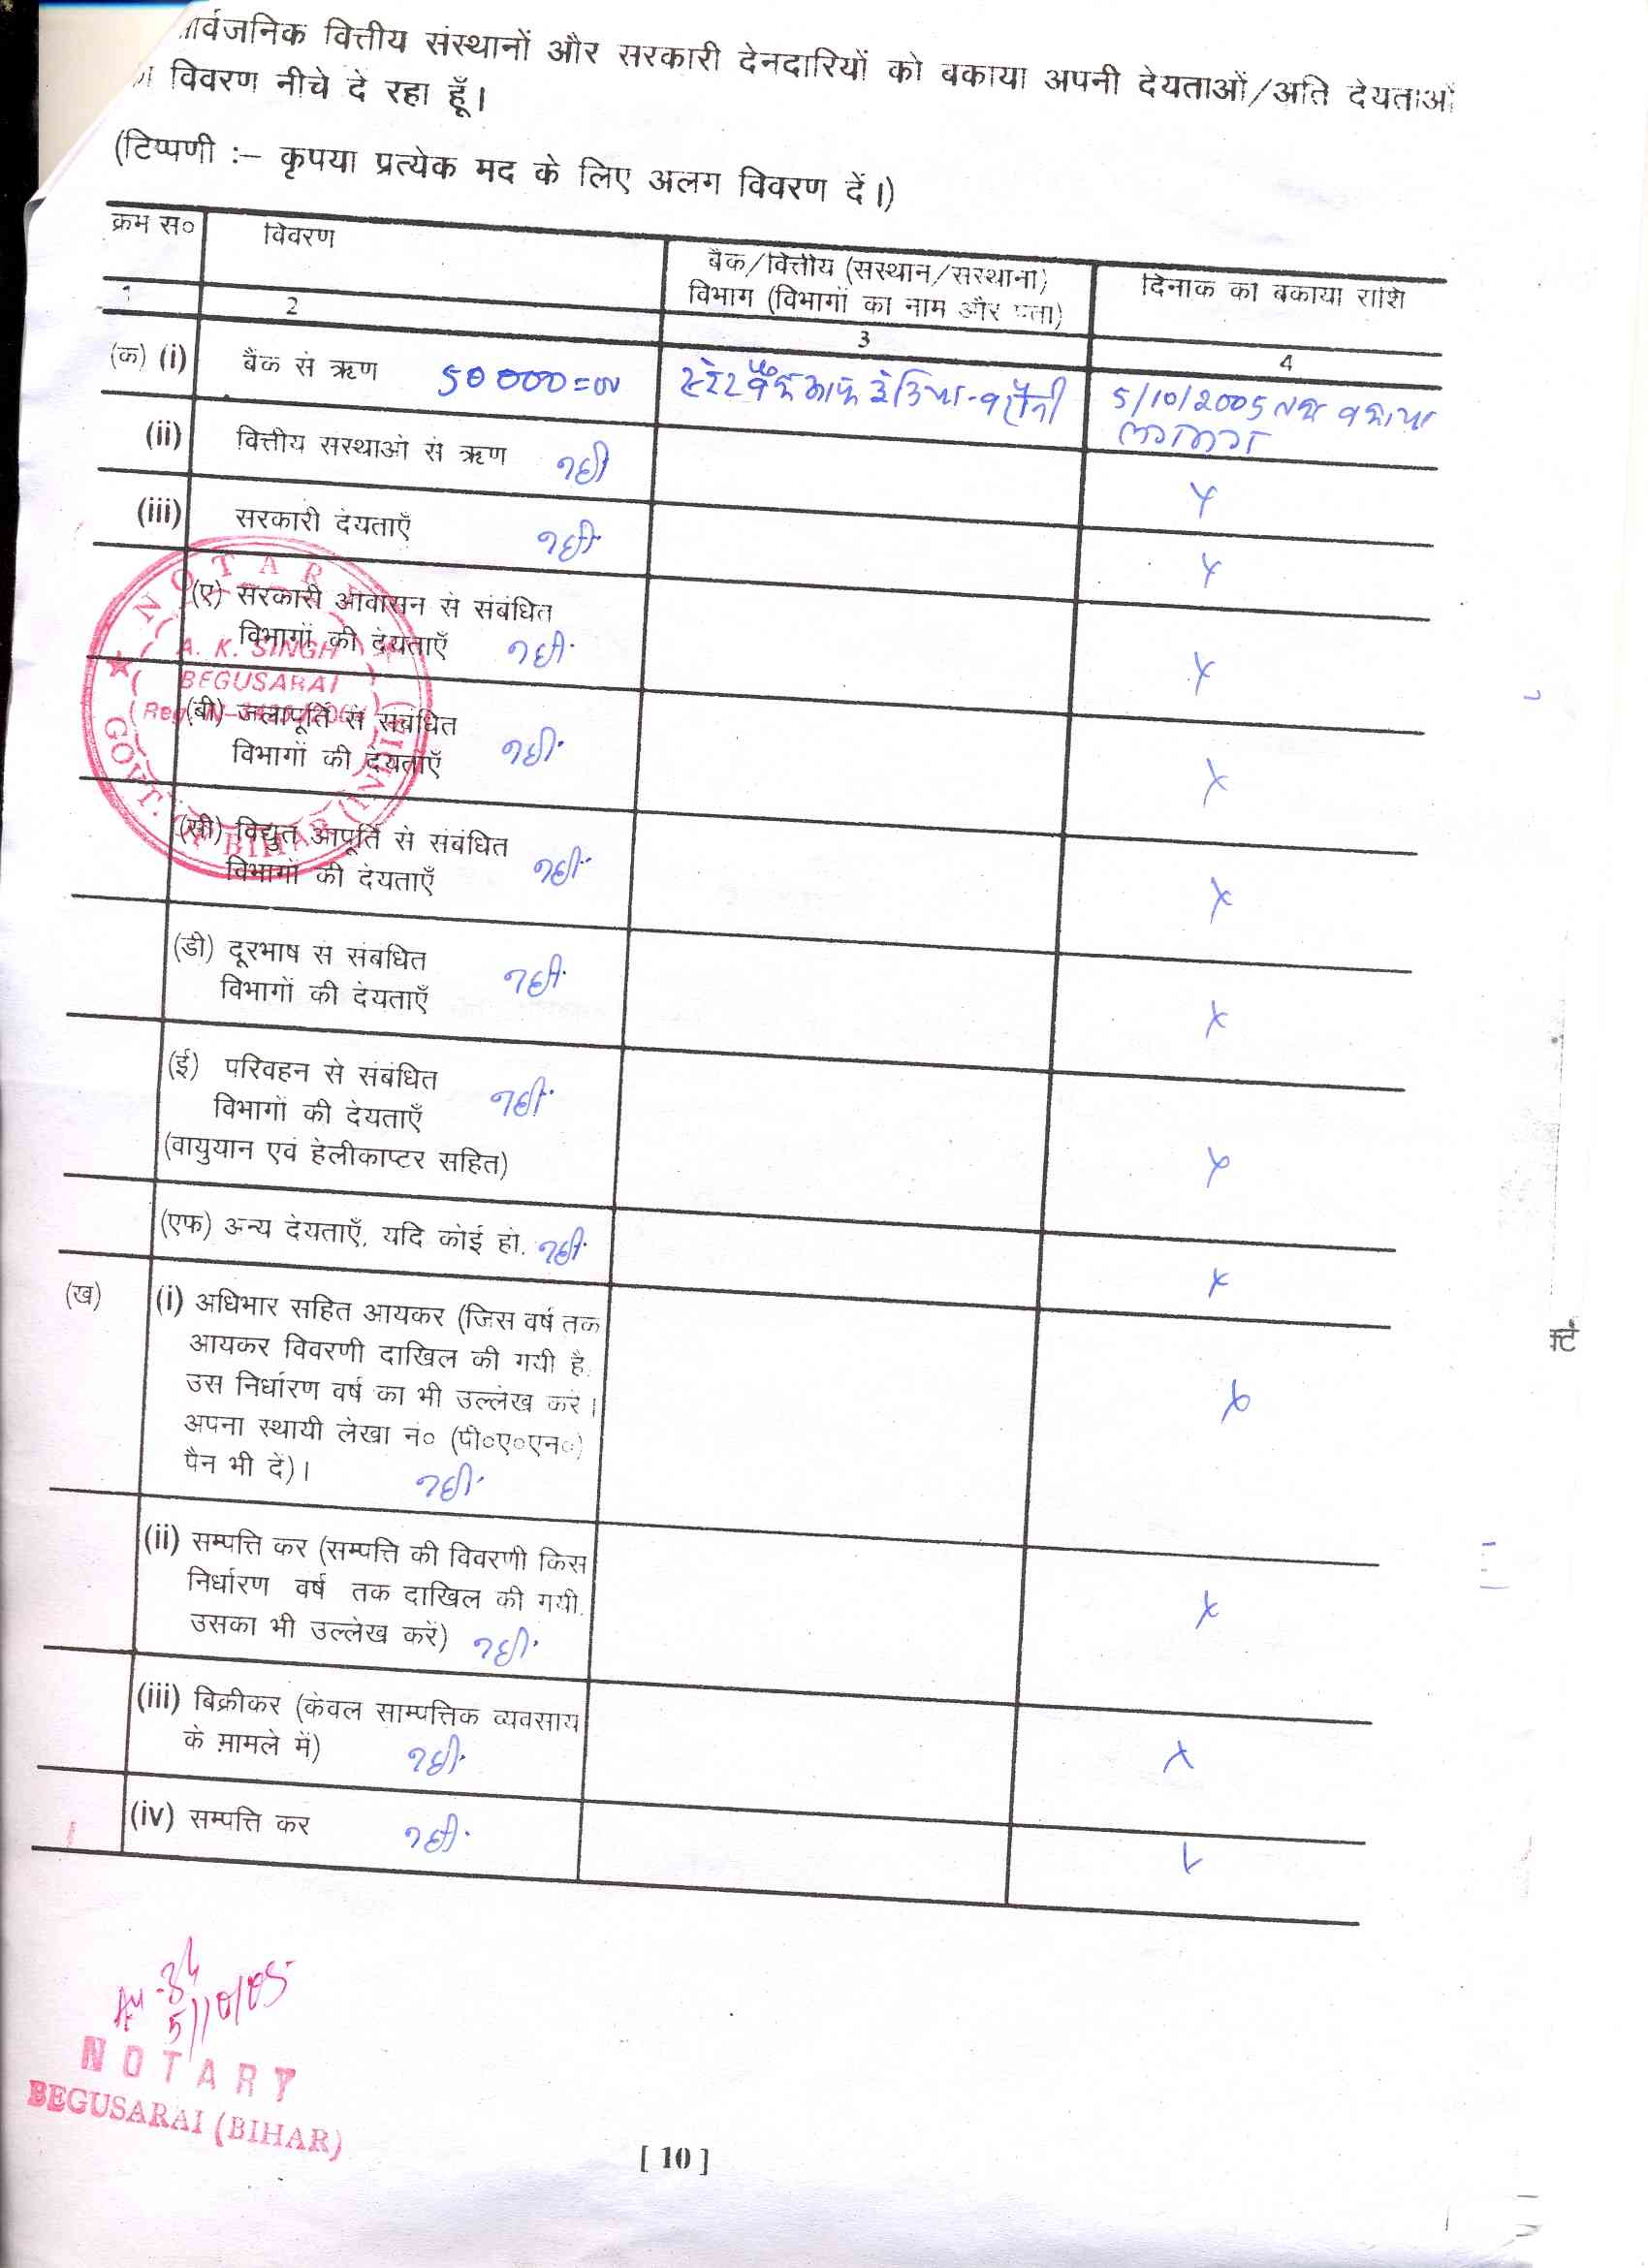 सार्वजनिक वित्तीय संस्थानों और सरकारी देनदारियों को बकाया अपनी देयताओं/अति देयताओं
का विवरण नीचे दे रहा हूँ।
(टिप्पणी :– कृपया प्रत्येक मद के लिए अलग विवरण दें।)
क्रम स० विवरण बैंक/वित्तीय (संस्थान/संस्थानों) दिनांक को बकाया राशि
विभाग (विभागों का नाम और पता)
1 2 3 4
(क) (i) बैंक से ऋण 50000=00 स्टेट बैंक आफ इंडिया-बरौनी 5/10/2005 तक बकाया
लगभग
(ii) वित्तीय संस्थाओं से ऋण नहीं x
(iii) सरकारी देयताएँ नहीं x
(ए) सरकारी आवासन से संबंधित
विभागों की देयताएँ नहीं x
(बी) जलापूर्ति से संबंधित
विभागों की देयताएँ नहीं x
(सी) विद्युत आपूर्ति से संबंधित
विभागों की देयताएँ नहीं x
(डी) दूरभाष से संबंधित
विभागों की देयताएँ नहीं x
(ई) परिवहन से संबंधित
विभागों की देयताएँ नहीं
(वायुयान एवं हेलीकाप्टर सहित) x
(एफ) अन्य देयताएँ, यदि कोई हो. नहीं x
(ख) (i) अधिभार सहित आयकर (जिस वर्ष तक
आयकर विवरणी दाखिल की गयी है,
उस निर्धारण वर्ष का भी उल्लेख करें।
अपना स्थायी लेखा नं० (पी०ए०एन०)
पैन भी दें)। नहीं x
(ii) सम्पत्ति कर (सम्पत्ति की विवरणी किस
निर्धारण वर्ष तक दाखिल की गयी,
उसका भी उल्लेख करें) नहीं x
(iii) बिक्रीकर (केवल साम्पत्तिक व्यवसाय
के मामले में) नहीं x
(iv) सम्पत्ति कर नहीं
NOTARY
A. K. SINGH
BEGUSARAI
GOVT. OF BIHAR (INDIA)
5/10/05
NOTARY
BEGUSARAI (BIHAR)
[ 10 ]